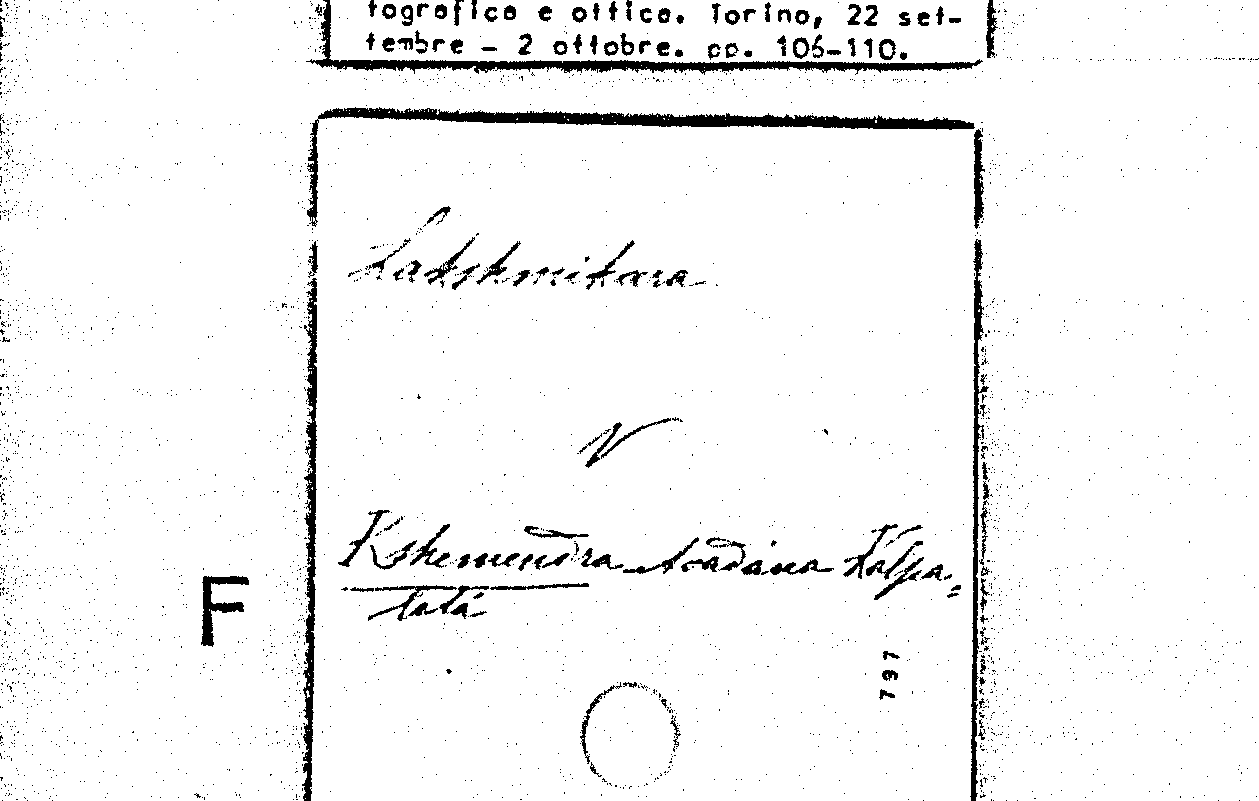 tografica e ottica. Torino, 22 set-
tembre - 2 ottobre. pp. 106-110.
Lakshmikara
V
Kshemendra Avadána Kalpa=
latá
F
797